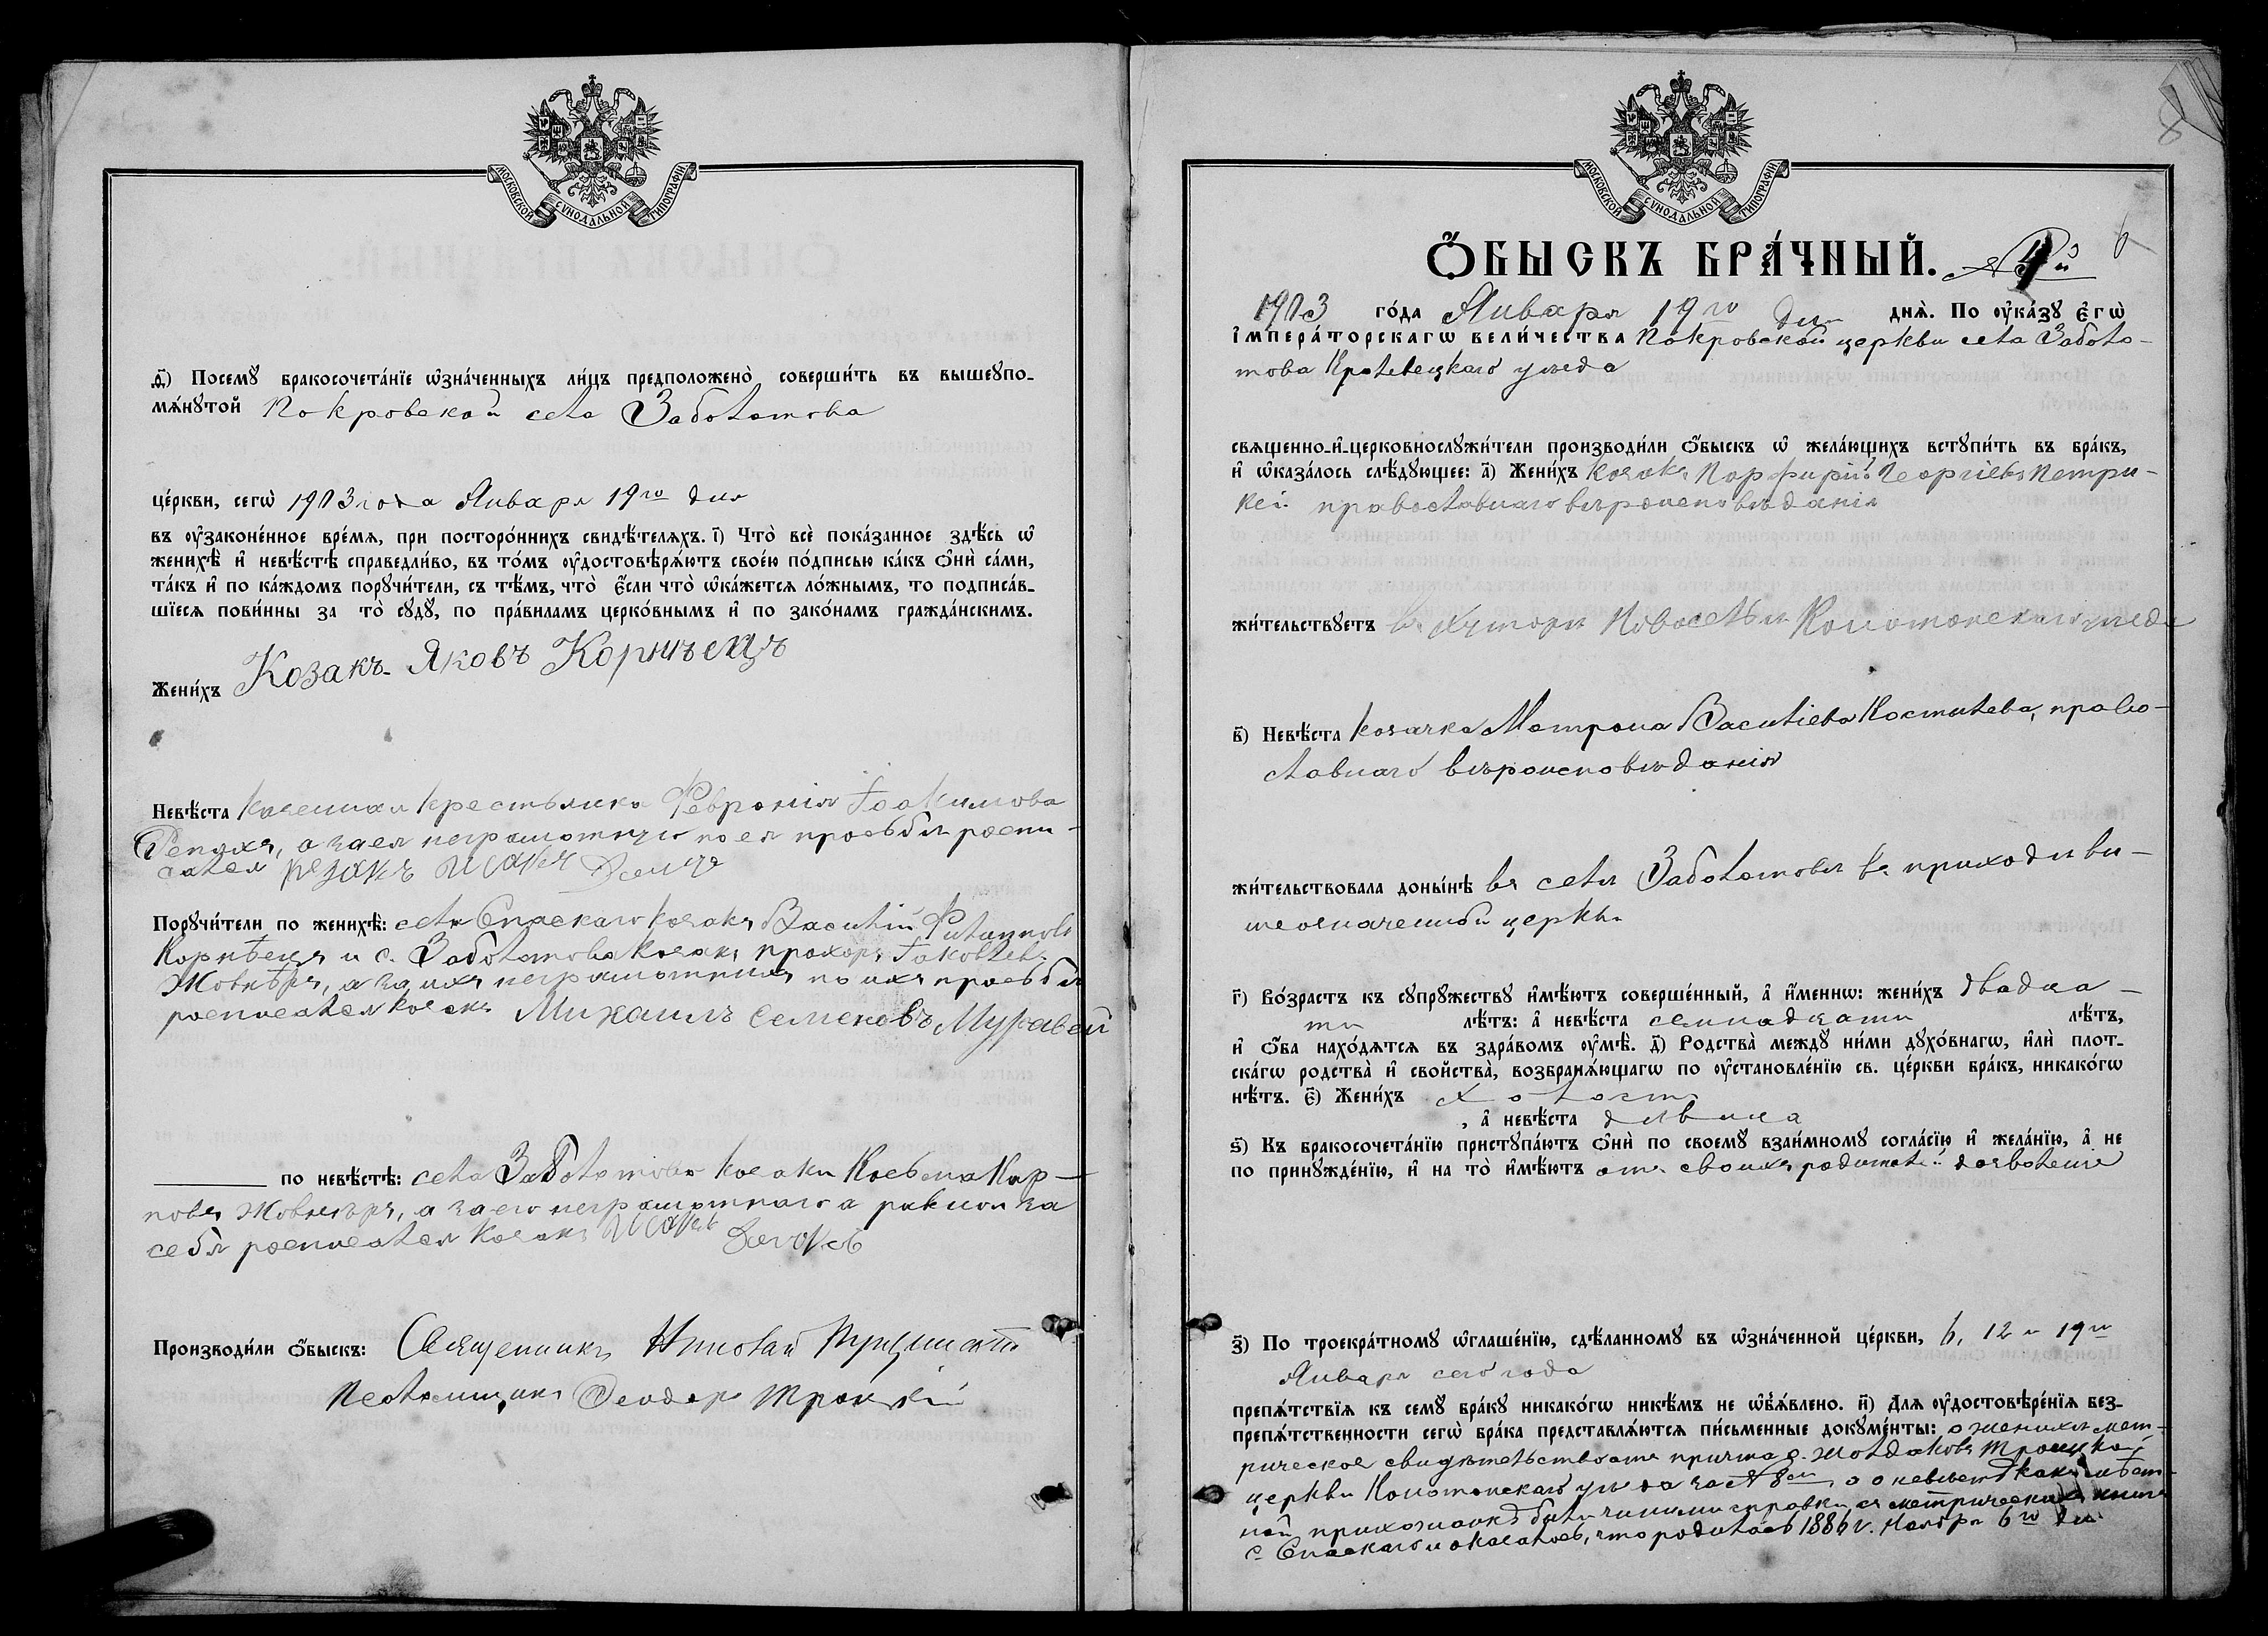 МОСКОВСКОЙ СѴНОДАЛЬНОЙ ТИПОГРАФІИ.
д҃) Посемꙋ̀ бракосочета́нїе ѡ҆зна́ченныхъ ли́цъ предположено̀ соверши́ть въ вышеꙋпо-
мѧ́нꙋтой Покровской села Заболотова
це́ркви, сегѡ̀ 1903 года Января 19го дня
въ ᲂу҆законе́нное вре́мѧ, при посторо́ннихъ свидѣ́телѧхъ. і҃) Что̀ всѐ пока́занное здѣ́сь ѡ҆
женихѣ̀ и҆ невѣ́стѣ справедли́во, въ то́мъ ᲂу҆достовѣрѧ́ютъ свое́ю по́дписью ка́къ ѻ҆нѝ са́ми,
та́къ и҆ по ка́ждомъ порꙋчи́тели, съ тѣ́мъ, что̀ є҆́сли что̀ ѡ҆ка́жетсѧ ло́жнымъ, то подписа́в-
шїесѧ пови́нны за то̀ сꙋдꙋ̀, по пра́виламъ церко́внымъ и҆ по зако́намъ гражда́нскимъ.
Жени́хъ Козакъ Яковъ Корнѣецъ
Невѣ́ста Казенная крестьянка Феврония Іоакимова
Репяхъ, а за ея неграмотную по ея просьбѣ роспи-
сался козакъ Исакъ
Порꙋчи́тели по женихѣ̀: села Спаскаго козакъ Василій Филипповъ
Корнѣецъ и с. Заболотова козакъ Прохоръ Іаковлевъ
Жовнѣръ, а за ихъ неграмотныхъ по ихъ просьбѣ
росписался козакъ Михаилъ Семеновъ Муравей
по невѣ́стѣ: села Заболотова козаки Косьма Кар-
повъ Жовнѣръ, а за его неграмотнаго а равно и за
себя росписался козакъ Исакъ
Производи́ли ѻ҆́быскъ: Священникъ Николай
Псаломщикъ Ѳеодоръ Троцкій
МОСКОВСКОЙ СѴНОДАЛЬНОЙ ТИПОГРАФІИ.
8
Ѻ҆́БЫСКЪ БРА́ЧНЫЙ. 6
1903 го́да Января 19го дня днѧ̀. По ᲂу҆ка́зꙋ є҆гѡ̀
і҆мпера́торскагѡ вели́чества Покровской церкви села Заболо-
това Кролевецкаго уѣзда
свѧщенно-и҆-церковнослꙋжи́тели производи́ли ѻ҆́быскъ ѡ҆ жела́ющихъ встꙋпи́ть въ бра́къ,
и҆ ѡ҆каза́лось слѣ́дꙋющее: а҃) Жени́хъ козакъ Порфирій Георгіевъ Петри-
кей православнаго вѣроисповѣданія
жи́тельствꙋетъ въ хуторѣ Новоселки Конотопскаго уѣзда
в҃) Невѣ́ста козачка Матрона Василіева Костилева, право-
славнаго вѣроисповѣданія
жи́тельствовала доны́нѣ въ селѣ Заболотовѣ въ приходѣ вы-
шеозначенной церкви
г҃) Во́зрастъ къ сꙋпрꙋ́жествꙋ и҆мѣ́ютъ соверше́нный, а҆ и҆́меннѡ: жени́хъ двадца-
ти лѣ́тъ: а҆ невѣ́ста семнадцати лѣ́тъ,
и҆ ѻ҆́ба нахо́дѧтсѧ въ здра́вомъ ᲂу҆мѣ̀. д҃) Родства̀ междꙋ̀ ни́ми дꙋхо́внагѡ, и҆лѝ плот-
ска́гѡ родства̀ и҆ свойства̀, возбранѧ́ющагѡ по ᲂу҆становле́нїю св. це́ркви бра́къ, никако́гѡ
нѣ́тъ. є҃) Жени́хъ холостъ
, а҆ невѣ́ста дѣвица
ѕ҃) Къ бракосочета́нїю пристꙋпа́ютъ ѻ҆нѝ по своемꙋ̀ взаи́мномꙋ согла́сїю и҆ жела́нїю, а҆ не
по принꙋжде́нїю, и҆ на то̀ и҆мѣ́ютъ отъ своихъ родителей дозволеніе
з҃) По троекра́тномꙋ ѡ҆глаше́нїю, сдѣ́ланномꙋ въ ѡ҆зна́ченной це́ркви, 6, 12 и 19го
Января сего года
препѧ́тствїѧ къ семꙋ̀ бра́кꙋ никако́гѡ никѣ́мъ не ѡ҆б̾ѧ́влено. и҃) Длѧ ᲂу҆достовѣре́нїѧ без-
препѧ́тственности сегѡ̀ бра́ка представлѧ́ютсѧ пи́сьменные докꙋме́нты: о женихѣ мет-
рическое свидѣтельство отъ причта с. Жолдаковъ Троицкой
церкви Конотопскаго уѣзда за № 8мъ, а о невѣстѣ какъ мѣст-
ной прихожанкѣ были чинимы справки съ метрическихъ книгъ
с. Спаскаго и оказалось, что родилась 1886 г. Ноября 6го дня